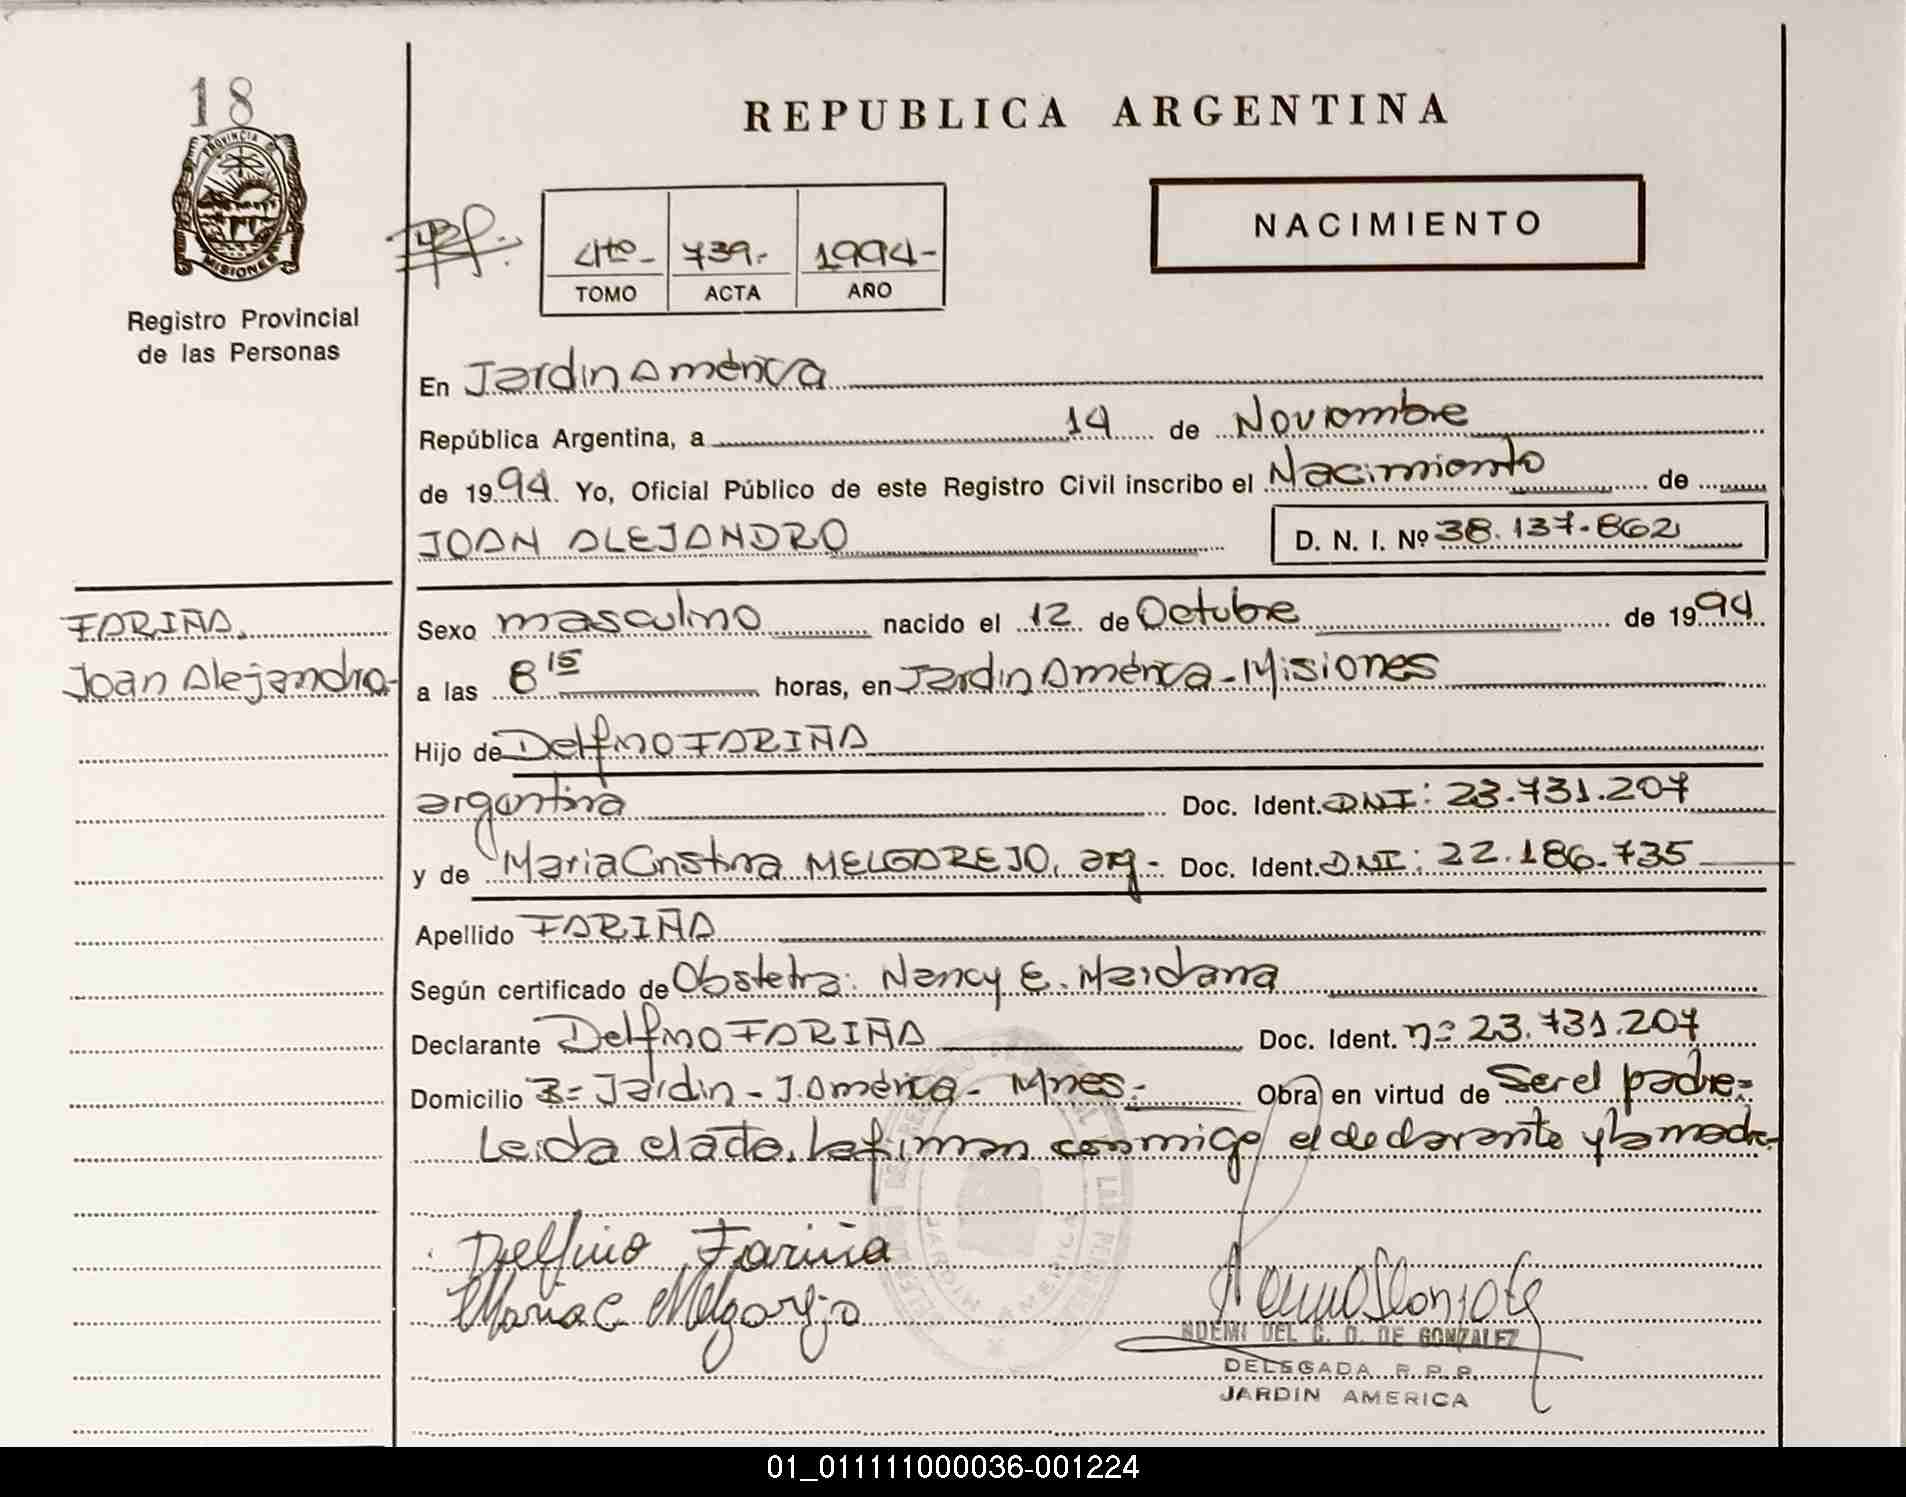 18
PROVINCIA DE
MISIONES
Registro Provincial
de las Personas
REPUBLICA ARGENTINA
NACIMIENTO
4to- 739.- 1994-
TOMO ACTA AÑO
En Jardin América
República Argentina, a 14 de Noviembre
de 1994. Yo, Oficial Público de este Registro Civil inscribo el Nacimiento de
JOAN ALEJANDRO D. N. I. Nº 38.137.862
FARIÑA.
Joan Alejandro.-
Sexo masculino nacido el 12 de Octubre de 1994.
a las 8 15 horas, en Jardin América - Misiones
Hijo de Delfino FARIÑA
argentina Doc. Ident. DNI: 23.731.207
y de Maria Cristina MELGAREJO, arg.- Doc. Ident. DNI: 22.186.735
Apellido FARIÑA
Según certificado de Obstetra: Nancy E. Maidana
Declarante Delfino FARIÑA Doc. Ident. nº 23.731.207
Domicilio Bº Jardin - J. América - Mnes.- Obra en virtud de Ser el padre.-
Leida el acta, la firman conmigo el declarante y la madre.
Delfino Fariña
Maria C Melgarejo
JARDIN AMERICA
NOEMI DEL C. O. DE GONZALEZ
DELEGADA R.P.P.
JARDIN AMERICA
01_011111000036-001224